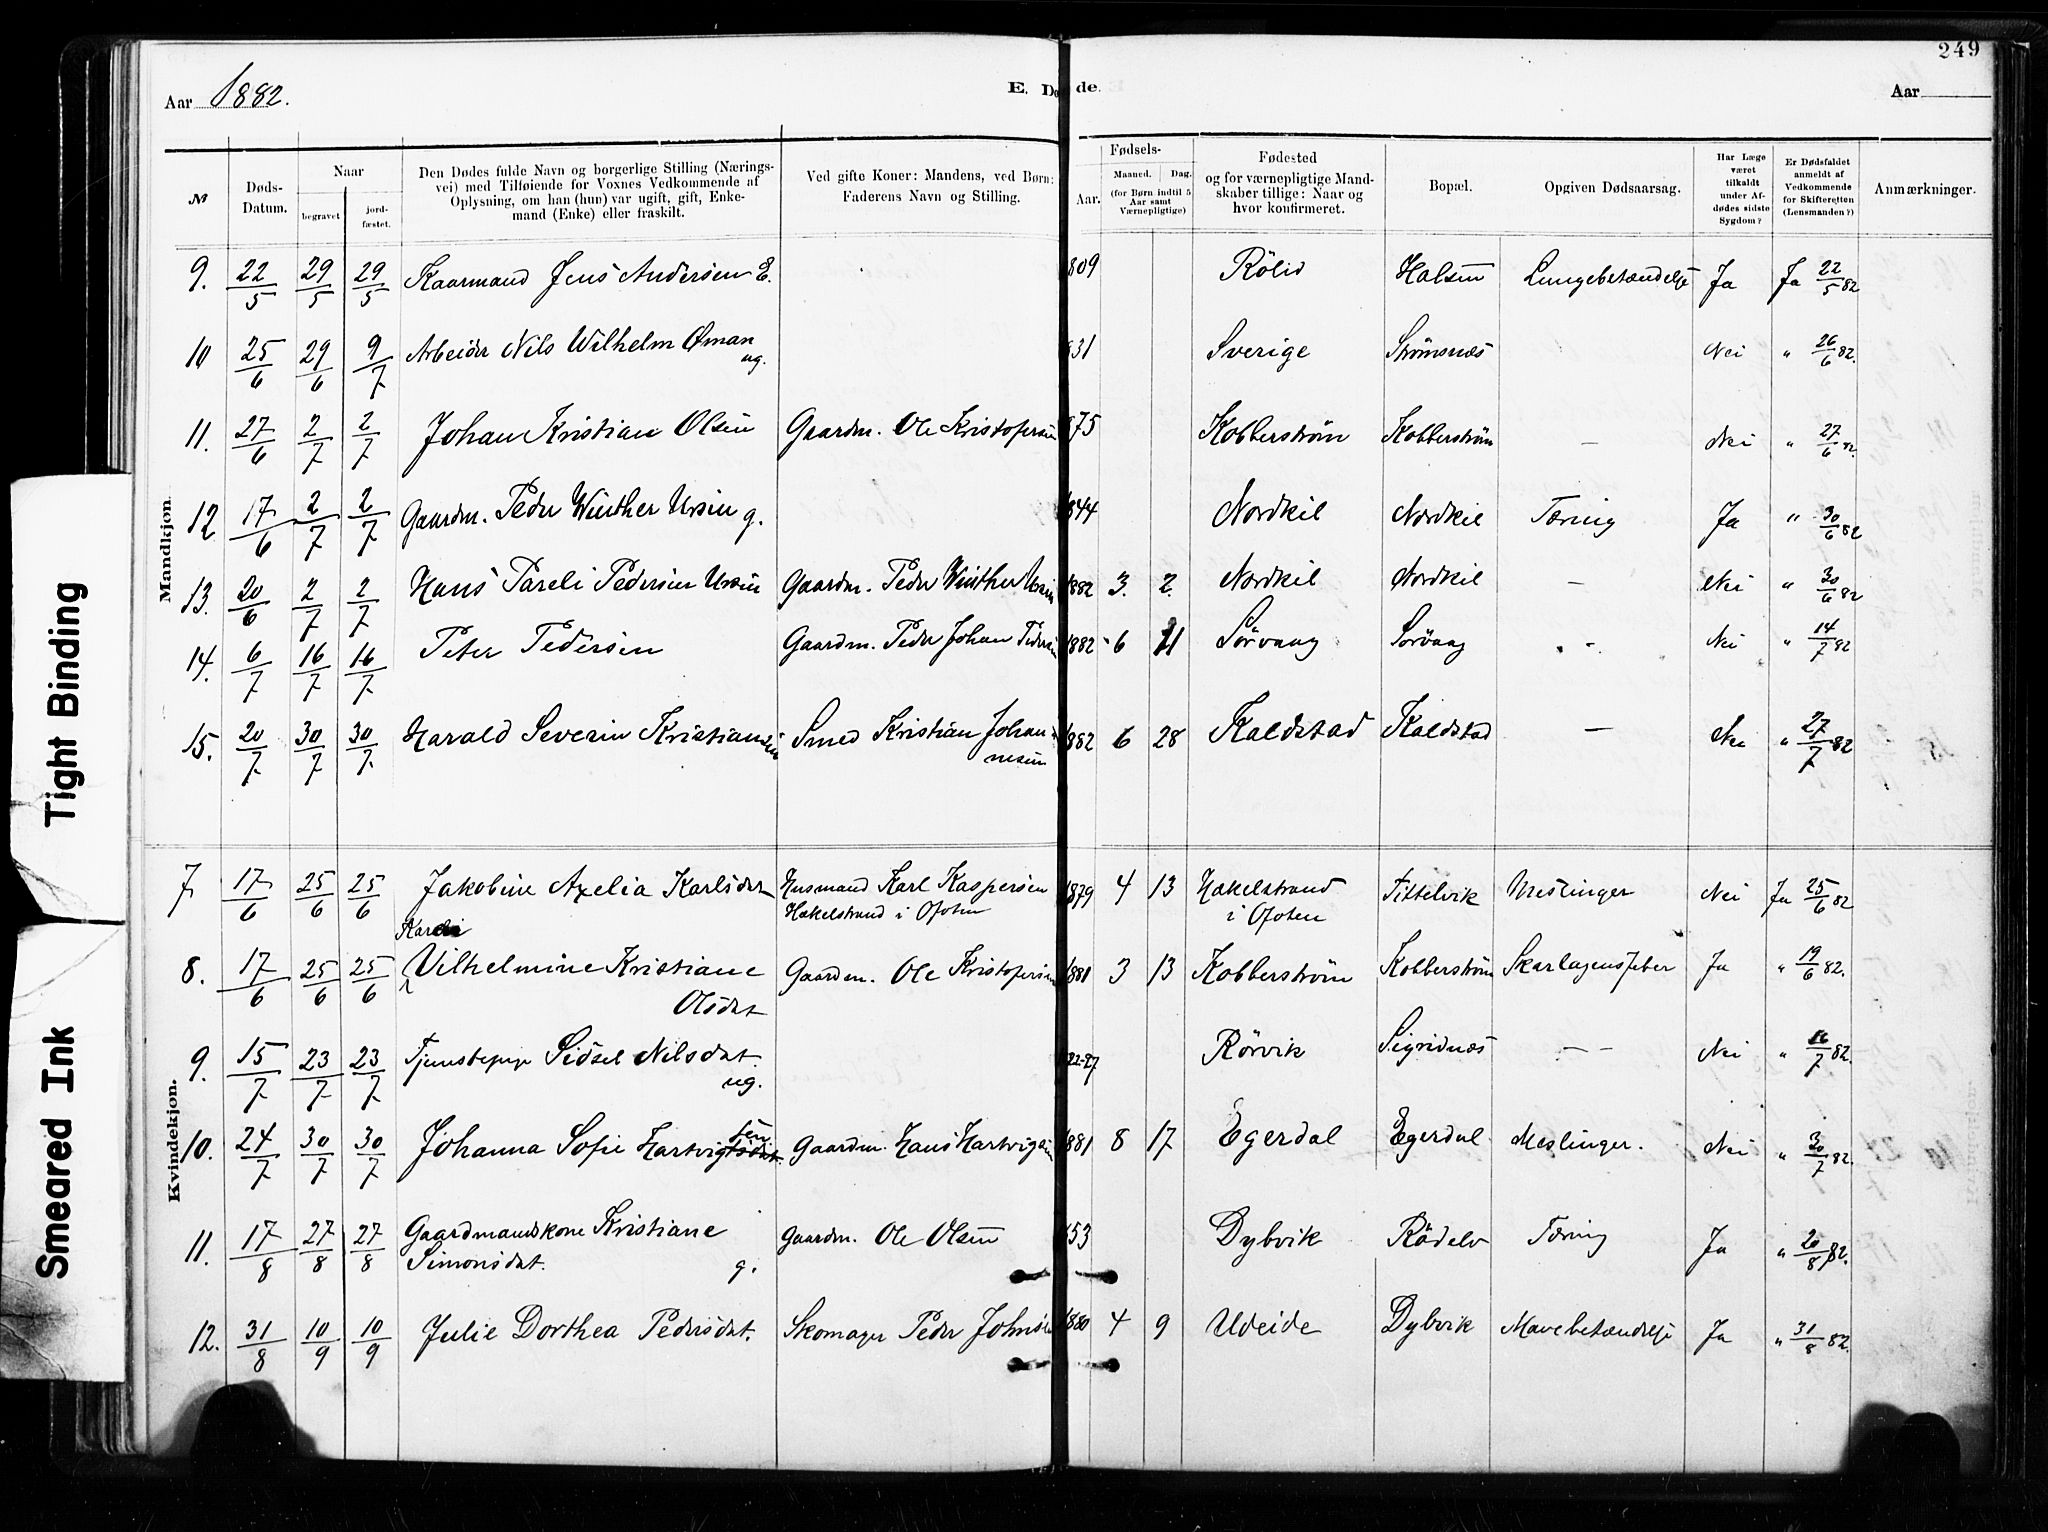 249
Aar 1882.
E. Døde.
Aar
№
Døds-Datum.
Naar
begravet
jordfæstet.
Den Dødes fulde Navn og borgerlige Stilling (Nærings-
vei) med Tilføiende for Voxnes Vedkommende af
Oplysning, om han (hun) var ugift, gift, Enke-
mand (Enke) eller fraskilt.
Ved gifte Koner: Mandens, ved Børn:
Faderens Navn og Stilling.
Fødsels-
Aar.
Maaned. Dag.
(for Børn indtil 5
Aar samt
Værnepligtige)
Fødested
og for værnepligtige Mand-
skaber tillige: Naar og
hvor konfirmeret.
Bopæl.
Opgiven Dødsaarsag.
Har Læge
været
tilkaldt
under Af-
dødes sidste
Sygdom?
Er Dødsfaldet
anmeldt af
Vedkommende
for Skifteretten
(Lensmanden?)
Anmærkninger.
Mandkjøn.
9. 22/5 29/5 29/5 Kaarmand Jens Andersen E. 809 Rölid Halsen Lungebetændelse Ja Ja 22/5 82
10 25/6 29/6 9/7 Arbeider Nils Wilhelm Øman ug. 31 Sverige Strømsnæs Nei " 26/6 82.
11. 27/6 2/7 2/7 Johan Kristian Olsen Gaardm. Ole Kristofersen 75 Kobberström Kobberström — Nei " 27/6 82.
12 17/6 2/7 2/7 Gaardm. Peder Winther Ursin g. 844 Nordkil Nordkil Tæring Ja " 30/6 82
13. 20/6 2/7 2/7 Hans Pareli Pedersen Ursin Gaardm. Peder Winther Ursin 1882 3. 2. Nordkil Nordkil — Nei " 30/6 82
14. 6/7 16/7 16/7 Peter Pedersen Gaardm. Peder Johan Pedersen 1882 6 11 Sørvaag Sørvaag - Nei " 14/7 82
15. 20/7 30/7 30/7 Harald Severin Kristiansen Smed Kristian Johan-
nesen 882 6 28 Kaldstad Kaldstad — Nei " 27/7 82
Kvindekjøn.
7 17/6 25/6 25/6 Jakobine Axelia Karlsdat Husmand Karl Kaspersen
Hækelstrand i Ofoten 1879 4 13 Hækelstrand
i Ofoten Tittelvik Meslinger Nei Ja 25/6 82
8. 17/6 25/6 25/6 Vilhelmine Kristiane
Olsdat Gaardm. Ole Kristofersen 1881 3 13 Kobberström Kobberström Skarlagensfeber Ja " 19/6 82.
9. 15/7 23/7 23/7 Tjenestepige Sidsel Nilsdat.
ug. 22-27 Rörvik Sigridnæs — Nei " 16/7 82.
10. 24/7 30/7 30/7 Johanna Sofie Hartvigsen Gaardm. Hans Hartvigsen 1881 8 17 Egerdal Egerdal. Meslinger. Nei " 30/7 82.
11. 17/8 27/8 27/8 Gaardmandskone Kristiane
Simonsdat. g. Gaardm. Ole Olsen 53 Dybvik Rödelv Tæring Ja " 20/8 82.
12. 31/8 10/9 10/9 Julie Dorthea Pedersdat. Skomager Peder Johnsen 1880 4 9 Udeide Dybvik Mavebetændelse Ja " 31/8 82.
Tight Binding
Smeared Ink